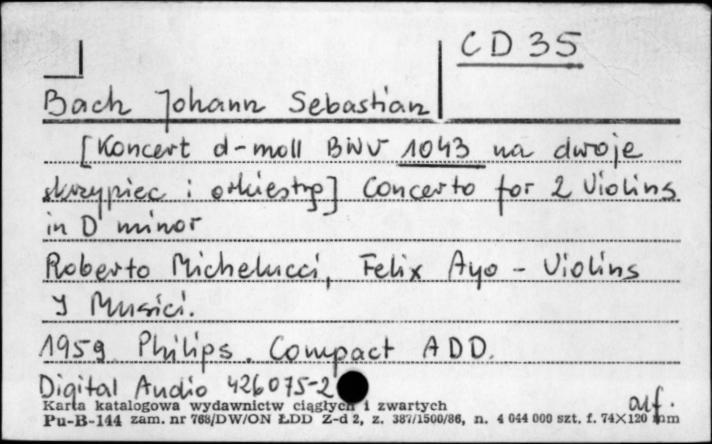 CD 35
Bach Johann Sebastian
[Koncert d-moll BWV 1043 na dwoje
skrzypiec i orkiestrę] Concerto for 2 Violins
in D minor
Roberto Michelucci, Felix Ayo - Violins
I Musici.
1959 Philips. Compact ADD.
Digital Audio 426 075-2
alf.
Karta katalogowa wydawnictw ciągłych i zwartych
Pu-B-144 zam. nr 768/DW/ON ŁDD Z-d 2, z. 387/1500/86, n. 4 044 000 szt. f. 74×120 mm